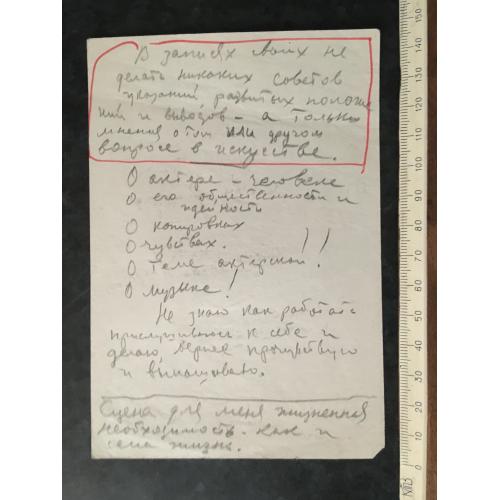 В записях своих не
делать никаких советов
указаний, развитых положе
ний и выводов - а только
мнения о том или другом
вопросе в искусстве.
О актере - человеке
О его общественности и
идейности
О копировках
О чувствах.
О теме актерской!!!
О музыке!
Не знаю как работать
прислушиваюсь к себе и
делаю, вернее прочувствую
и вынашиваю.
Сцена для меня жизненная
необходимость - как и
сама жизнь.
150
140
130
120
110
100
90
80
70
60
50
40
30
20
10
0